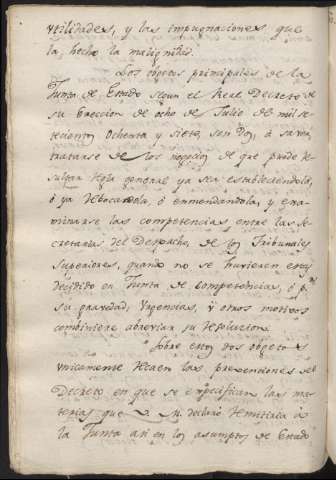 utilidades, y las impugnaciones que
la hecho la malignidad.
Los objetos principales de la
Junta de Estado segun el Real Decreto de
su Ereccion de ocho de Julio de mil se-
tecientos Ochenta y siete, son dos, ó saver
tratarse de los negocios de que puede re-
sultar regla general ya sea estableciendola,
ó ya rebocandola, ó enmendandola, y exa-
minarse las competencias entre las Se-
cretarias del Despacho, de los Tribunales
Superiores, quando no se huvieren estas
decidido en Junta de Competencias, ó pr
su gravedad, Urgencias, y otros motivos
combiniere abreviar su resolucion.
Sobre estos dos objetos
unicamente recaen las prevenciones del
Decreto en que se especifican las ma-
terias que se declaró remitirla á
la Junta asi en los asumptos de Estado